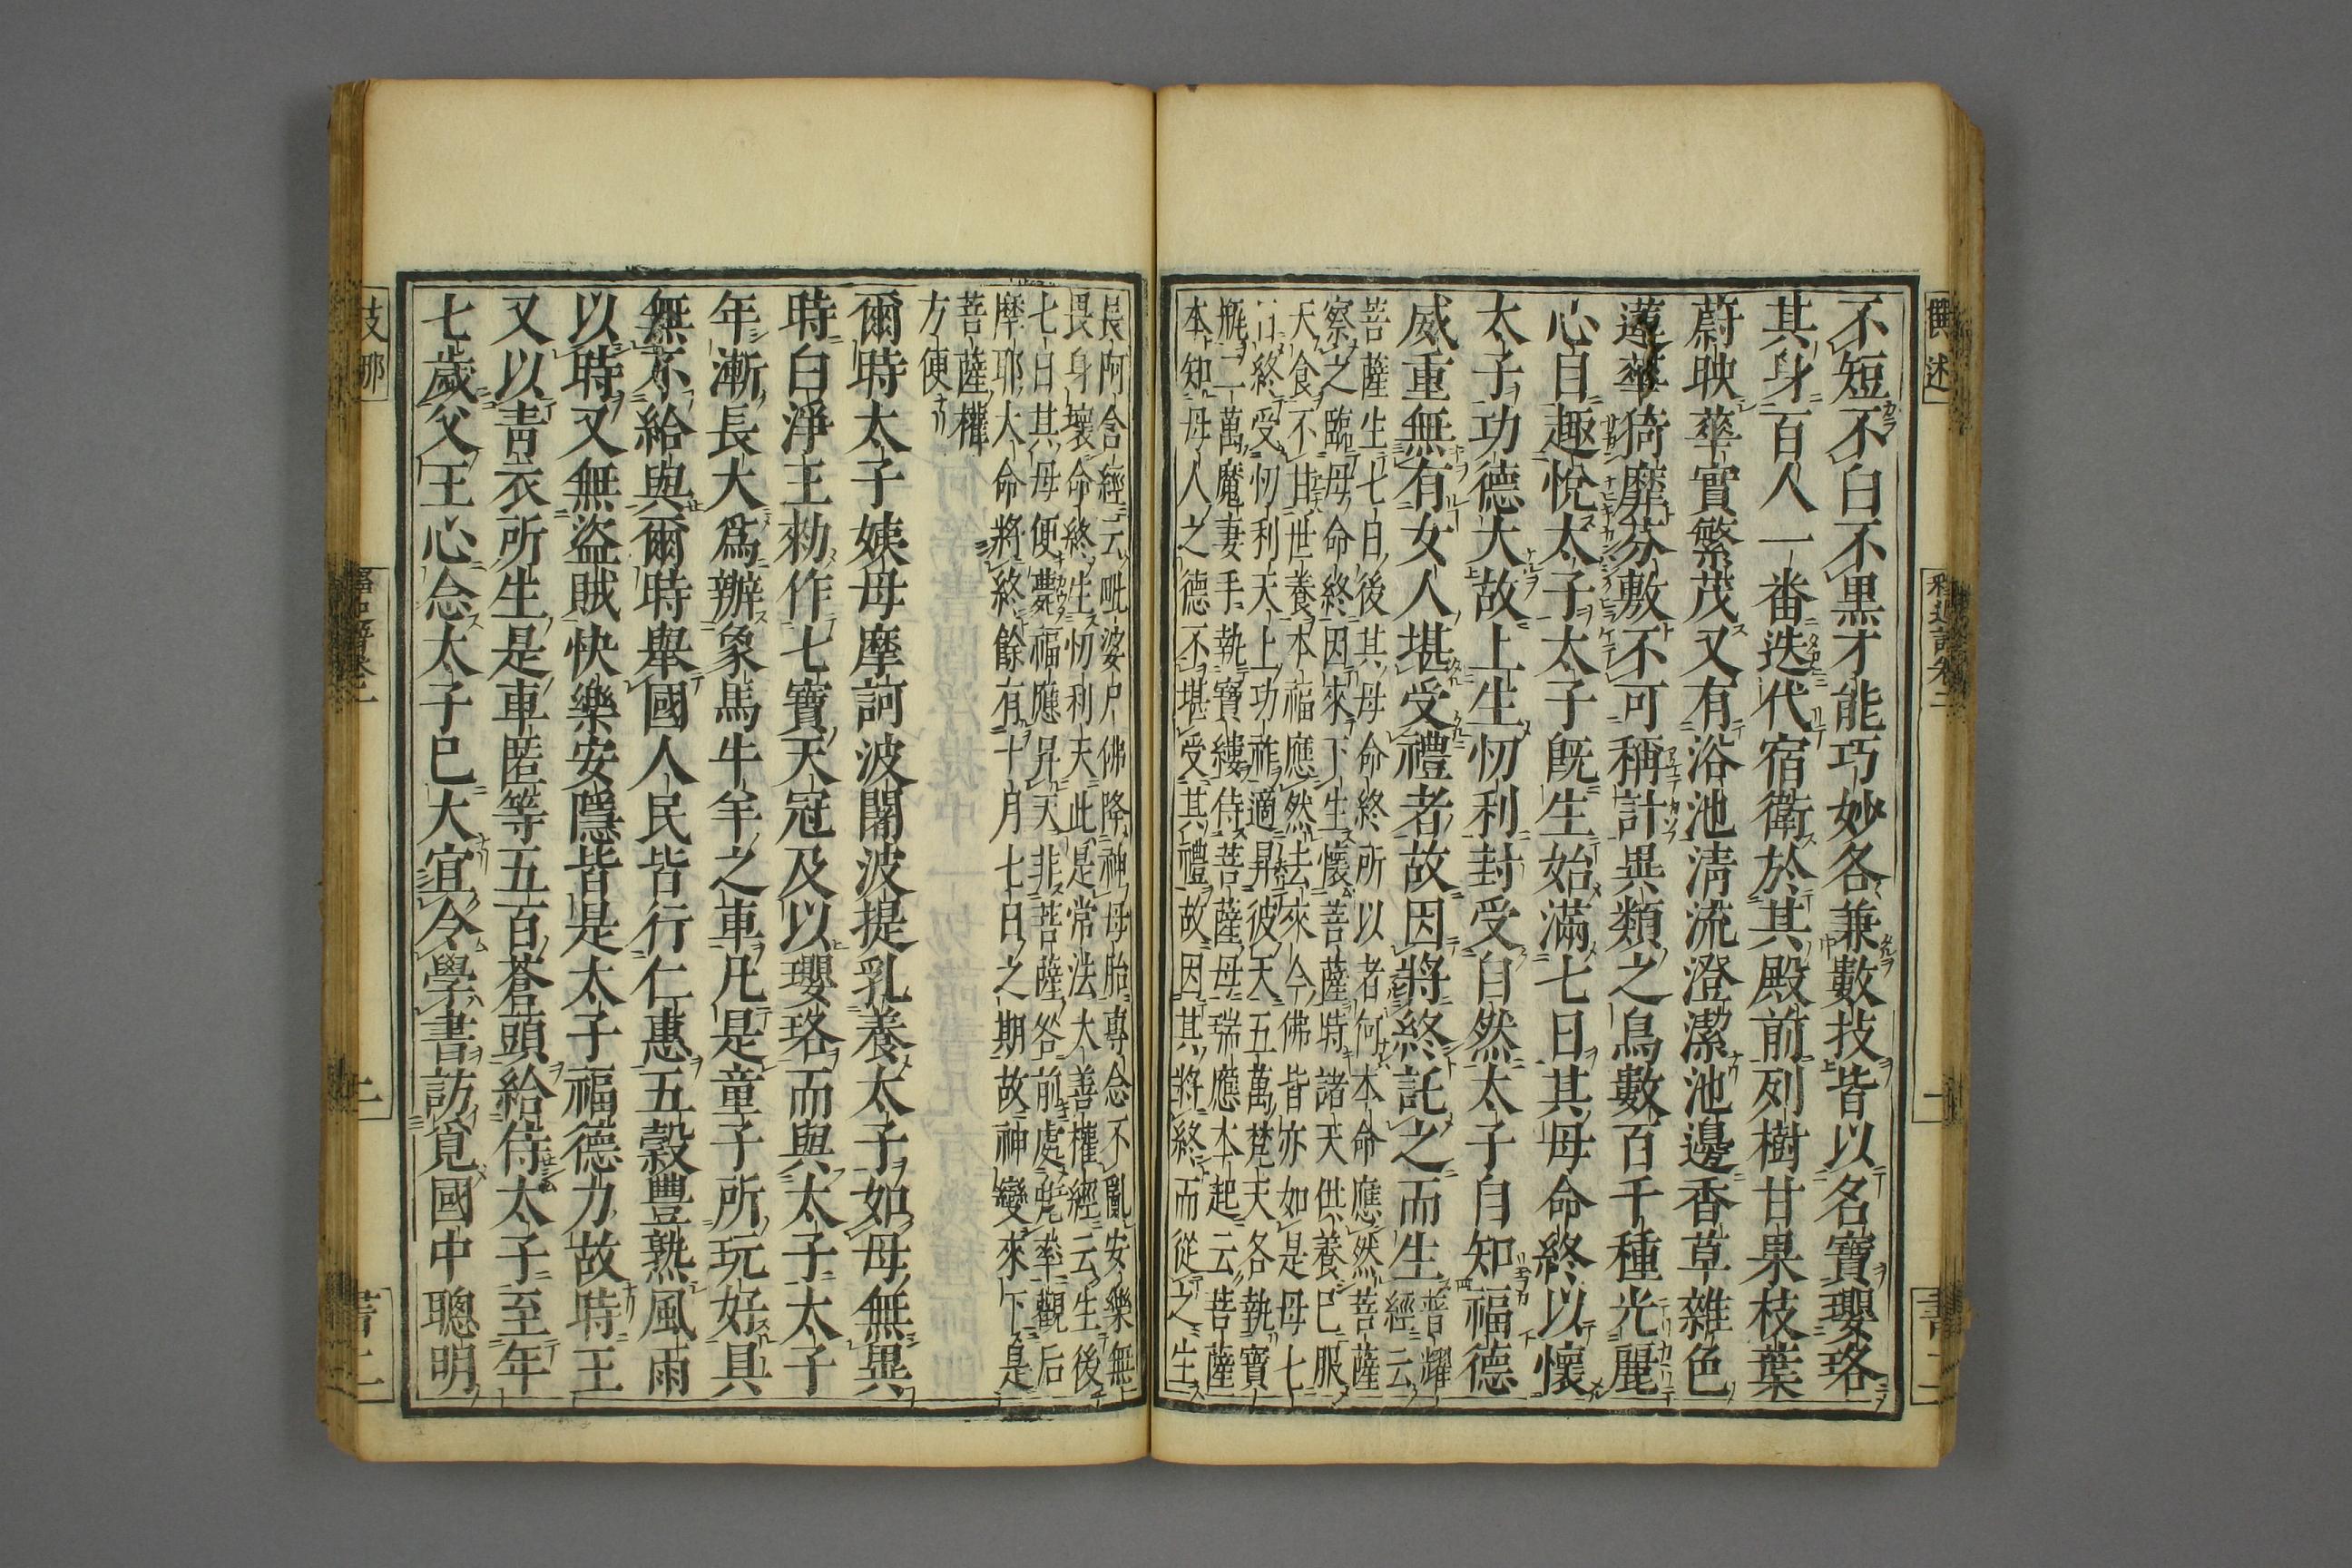 撰述 釋迦譜卷二 一 書二
不短不白不黒才能巧妙各兼數技皆以名寶瓔珞
其身百人一番迭代宿衛於其殿前列樹甘果枝葉
蔚映華實繁茂又有浴池清流澄潔池邊香草雜色
蓮華猗靡芬敷不可稱計異類之鳥數百千種光麗
心自趣悅太子太子旣生始滿七日其母命終以懷
太子功德大故上生忉利封受自然太子自知福德
威重無有女人堪受禮者故因將終託之而生普耀
經云
菩薩生七日後其母命終所以者何本命應然菩薩
察之臨母命終因來下生懷菩薩時諸天供養已服
天食不甘世養本福應然去來今佛皆亦如是母七
日終受忉利天上功祚適昇彼天五萬梵天各執寶
瓶二萬魔妻手執寶縷侍菩薩母瑞應本起云菩薩
本知母人之德不堪受其禮故因其將終而從之生
長阿含經云毗婆尸佛降神母胎專念不亂安樂無
畏身壞命終生忉利天此是常法大善權經云生後
七日其母便薨福應昇天非菩薩咎前處兜率觀后
摩耶大命將終餘有十月七日之期故神變來下是
菩薩權
方便
爾時太子姨母摩訶波闍波提乳養太子如母無異
時白淨王勑作七寶天冠及以瓔珞而與太子太子
年漸長大爲辦象馬牛羊之車凡是童子所玩好具
無不給與爾時舉國人民皆行仁惠五穀豐熟風雨
以時又無盜賊快樂安隱皆是太子福德力故時王
又以靑衣所生是車匿等五百蒼頭給侍太子至年
七歲父王心念太子已大宜令學書訪覓國中聰明
支那